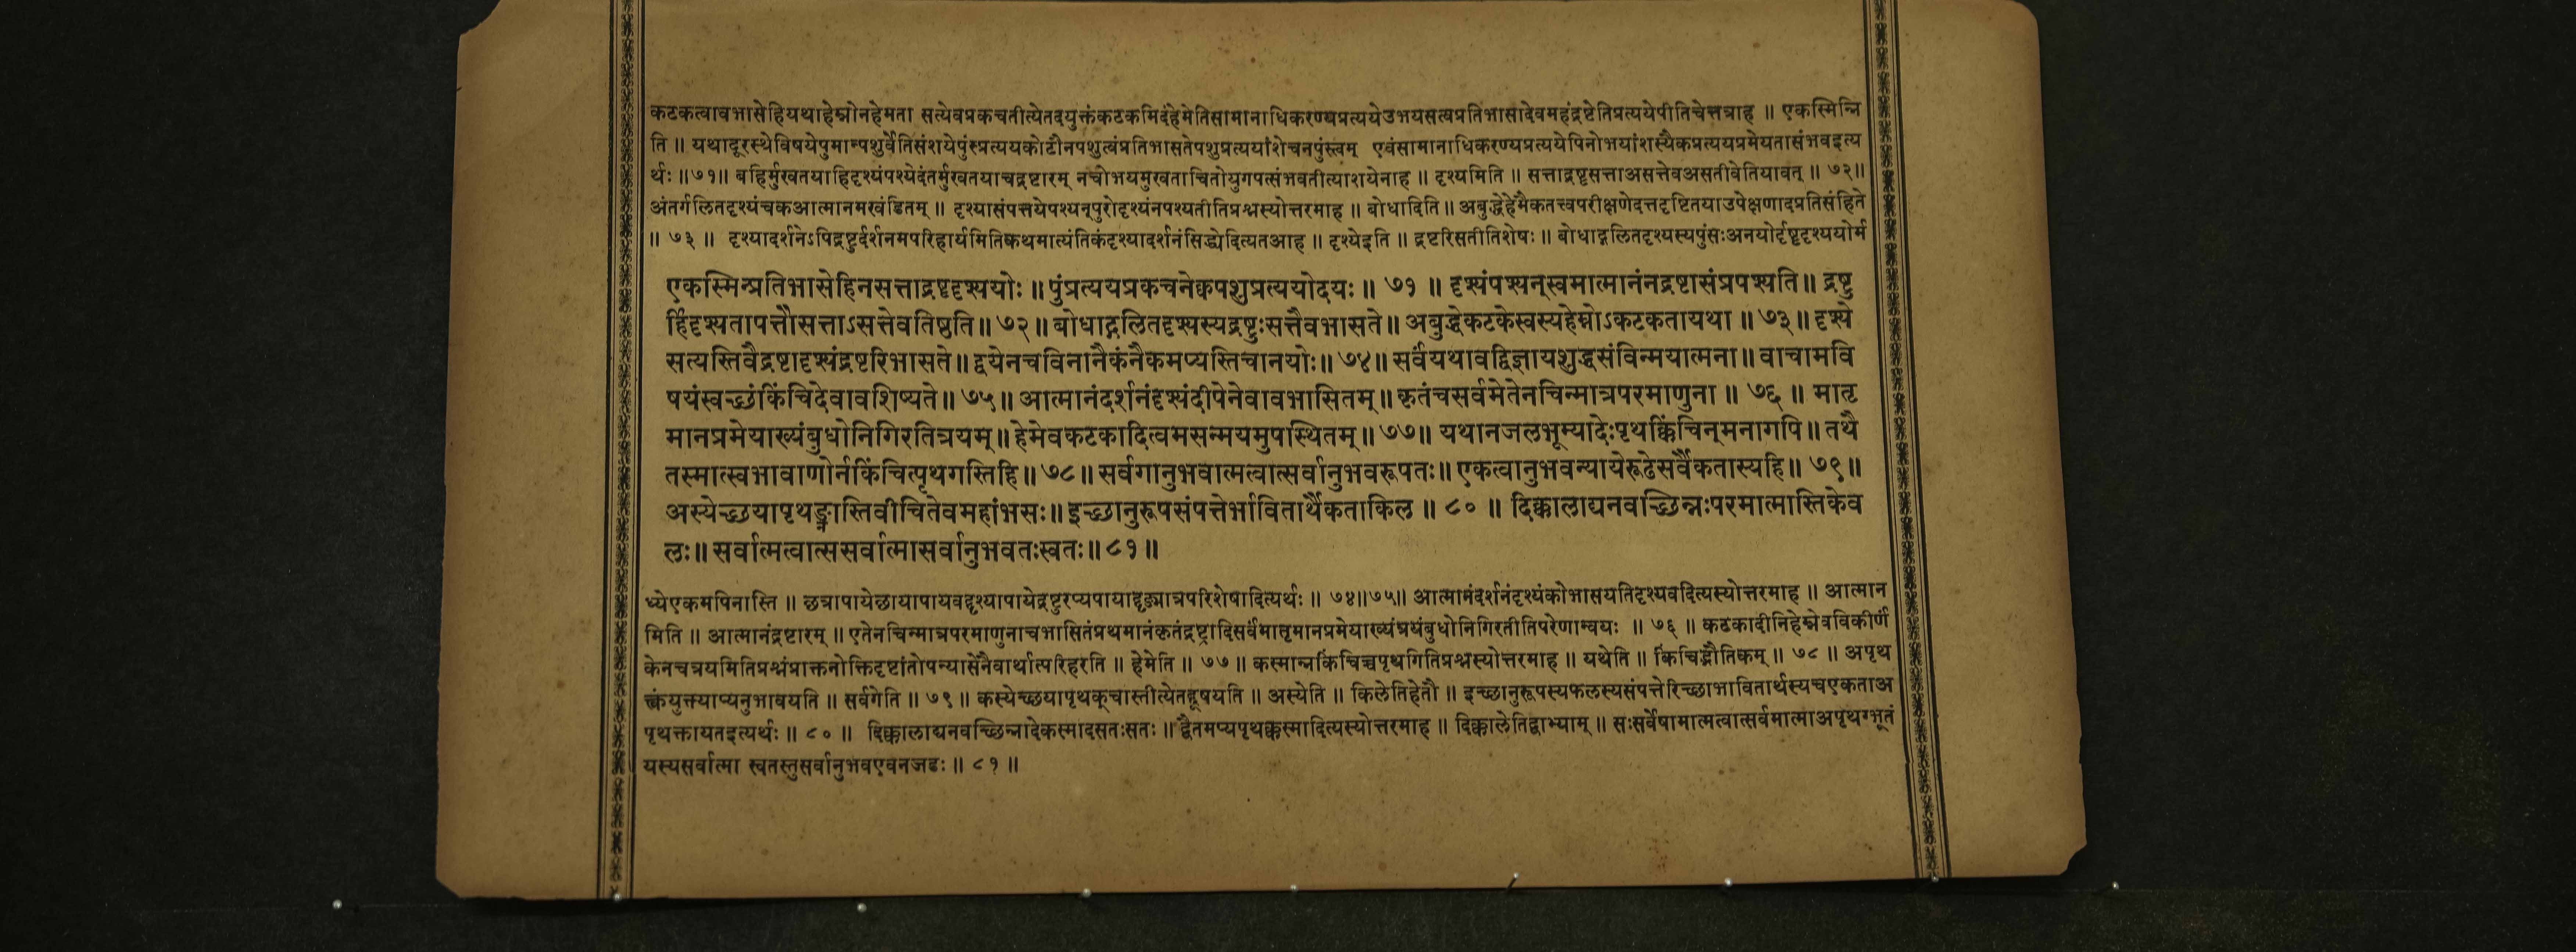 कटकत्वावभासेहियथाहेम्नोनहेमता सत्येवप्रकचतीत्येतदयुक्तंकटकमिदंहेमेतिसामानाधिकरण्यप्रत्ययेउभयसत्वप्रतिभासादेवमहंद्रष्टेतिप्रत्ययेपीतिचेत्तत्राह ॥ एकस्मिन्नि
ति ॥ यथादूरस्थेविषयेपुमान्पशुर्वेतिसंशयेपुंस्प्रत्ययकोटौनपशुत्वंप्रतिभासतेपशुप्रत्ययांशेचनपुंस्त्वम् एवंसामानाधिकरण्यप्रत्ययेपिनोभयांशस्यैकप्रत्ययप्रमेयतासंभवइत्य
र्थः ॥७१॥ बहिर्मुखतयाहिदृश्यंपश्येदंतर्मुखतयाचद्रष्टारम् नचोभयमुखताचितोयुगपत्संभवतीत्याशयेनाह ॥ दृश्यमिति ॥ सत्ताद्रष्टृसत्ताअसत्तेवअसतीवेतियावत् ॥ ७२॥
अंतर्गलितदृश्यंचकआत्मानमखंडितम् ॥ दृश्यासंपत्तयेपश्यन्पुरोदृश्यंनपश्यतीतिप्रश्नस्योत्तरमाह ॥ बोधादिति ॥ अबुद्धेहेमैकतत्त्वपरीक्षणेदत्तदृष्टितयाउपेक्षणादप्रतिसंहिते
॥ ७३ ॥ दृश्यादर्शनेऽपिद्रष्टुर्दर्शनमपरिहार्यमितिकथमात्यंतिकंदृश्यादर्शनंसिद्ध्येदित्यतआह ॥ दृश्येइति ॥ द्रष्टरिसतीतिशेषः ॥ बोधाद्गलितदृश्यस्यपुंसःअनयोर्द्रष्टृदृश्ययोर्म
एकस्मिन्प्रतिभासेहिनसत्ताद्रष्टृदृश्ययोः ॥ पुंप्रत्ययप्रकचनेक्वपशुप्रत्ययोदयः ॥ ७१ ॥ दृश्यंपश्यन्स्वमात्मानंनद्रष्टासंप्रपश्यति ॥ द्रष्टु
र्हिदृश्यतापत्तौसत्ताऽसत्तेवतिष्ठति ॥ ७२ ॥ बोधाद्गलितदृश्यस्यद्रष्टुःसत्तैवभासते ॥ अबुद्धेकटकेस्वस्यहेम्नोऽकटकतायथा ॥ ७३ ॥ दृश्ये
सत्यस्तिवैद्रष्टादृश्यंद्रष्टरिभासते ॥ द्वयेनचविनानैकंनैकमप्यस्तिचानयोः ॥ ७४ ॥ सर्वंयथावद्विज्ञायशुद्धसंविन्मयात्मना ॥ वाचामवि
षयंस्वच्छंकिंचिदेवावशिष्यते ॥ ७५ ॥ आत्मानंदर्शनंदृश्यंदीपेनेवावभासितम् ॥ कृतंचसर्वमेतेनचिन्मात्रपरमाणुना ॥ ७६ ॥ मातृ
मानप्रमेयाख्यंबुधोनिगिरतित्रयम् ॥ हेमेवकटकादित्वमसन्मयमुपस्थितम् ॥ ७७ ॥ यथानजलभूम्यादेःपृथक्किंचिन्मनागपि ॥ तथै
तस्मात्स्वभावाणोर्नकिंचित्पृथगस्तिहि ॥ ७८ ॥ सर्वगानुभवात्मत्वात्सर्वानुभवरूपतः ॥ एकत्वानुभवन्यायेरूढेसर्वैकतास्यहि ॥ ७९ ॥
अस्येच्छयापृथङ्नास्तिवीचितेवमहांभसः ॥ इच्छानुरूपसंपत्तेर्भावितार्थैकताकिल ॥ ८० ॥ दिक्कालाद्यनवच्छिन्नःपरमात्मास्तिकेव
लः ॥ सर्वात्मत्वात्ससर्वात्मासर्वानुभवतःस्वतः ॥ ८१ ॥
ध्येएकमपिनास्ति ॥ छत्रापायेछायापायवद्दृश्यापायेद्रष्टुरप्यपायाद्दृङ्मात्रपरिशेषादित्यर्थः ॥ ७४॥७५॥ आत्मानंदर्शनंदृश्यंकोभासयतिदृश्यवदित्यस्योत्तरमाह ॥ आत्मान
मिति ॥ आत्मानंद्रष्टारम् ॥ एतेनचिन्मात्रपरमाणुनाचभासितंप्रथमानंकृतंद्रष्ट्रादिसर्वंमातृमानप्रमेयाख्यंत्रयंबुधोनिगिरतीतिपरेणान्वयः ॥ ७६ ॥ कटकादीनिहेम्नेवविकीर्णं
केनचत्रयमितिप्रश्नंप्राक्तनोक्तिदृष्टांतोपन्यासेनैवार्थात्परिहरति ॥ हेमेति ॥ ७७ ॥ कस्मान्नकिंचिच्चपृथगितिप्रश्नस्योत्तरमाह ॥ यथेति ॥ किंचिद्भौतिकम् ॥ ७८ ॥ अपृथ
क्त्वंयुक्त्याप्यनुभावयति ॥ सर्वगेति ॥ ७९ ॥ कस्येच्छयापृथक्चास्तीत्येतद्दूषयति ॥ अस्येति ॥ किलेतिहेतौ ॥ इच्छानुरूपस्यफलस्यसंपत्तेरिच्छाभावितार्थस्यचएकताअ
पृथक्तायतइत्यर्थः ॥ ८० ॥ दिक्कालाद्यनवच्छिन्नादेकस्मादसतःसतः ॥ द्वैतमप्यपृथक्कस्मादित्यस्योत्तरमाह ॥ दिक्कालेतिद्वाभ्याम् ॥ सःसर्वेषामात्मत्वात्सर्वमात्माअपृथग्भूतं
यस्यसर्वात्मा स्वतस्तुसर्वानुभवएवनजडः ॥ ८१ ॥